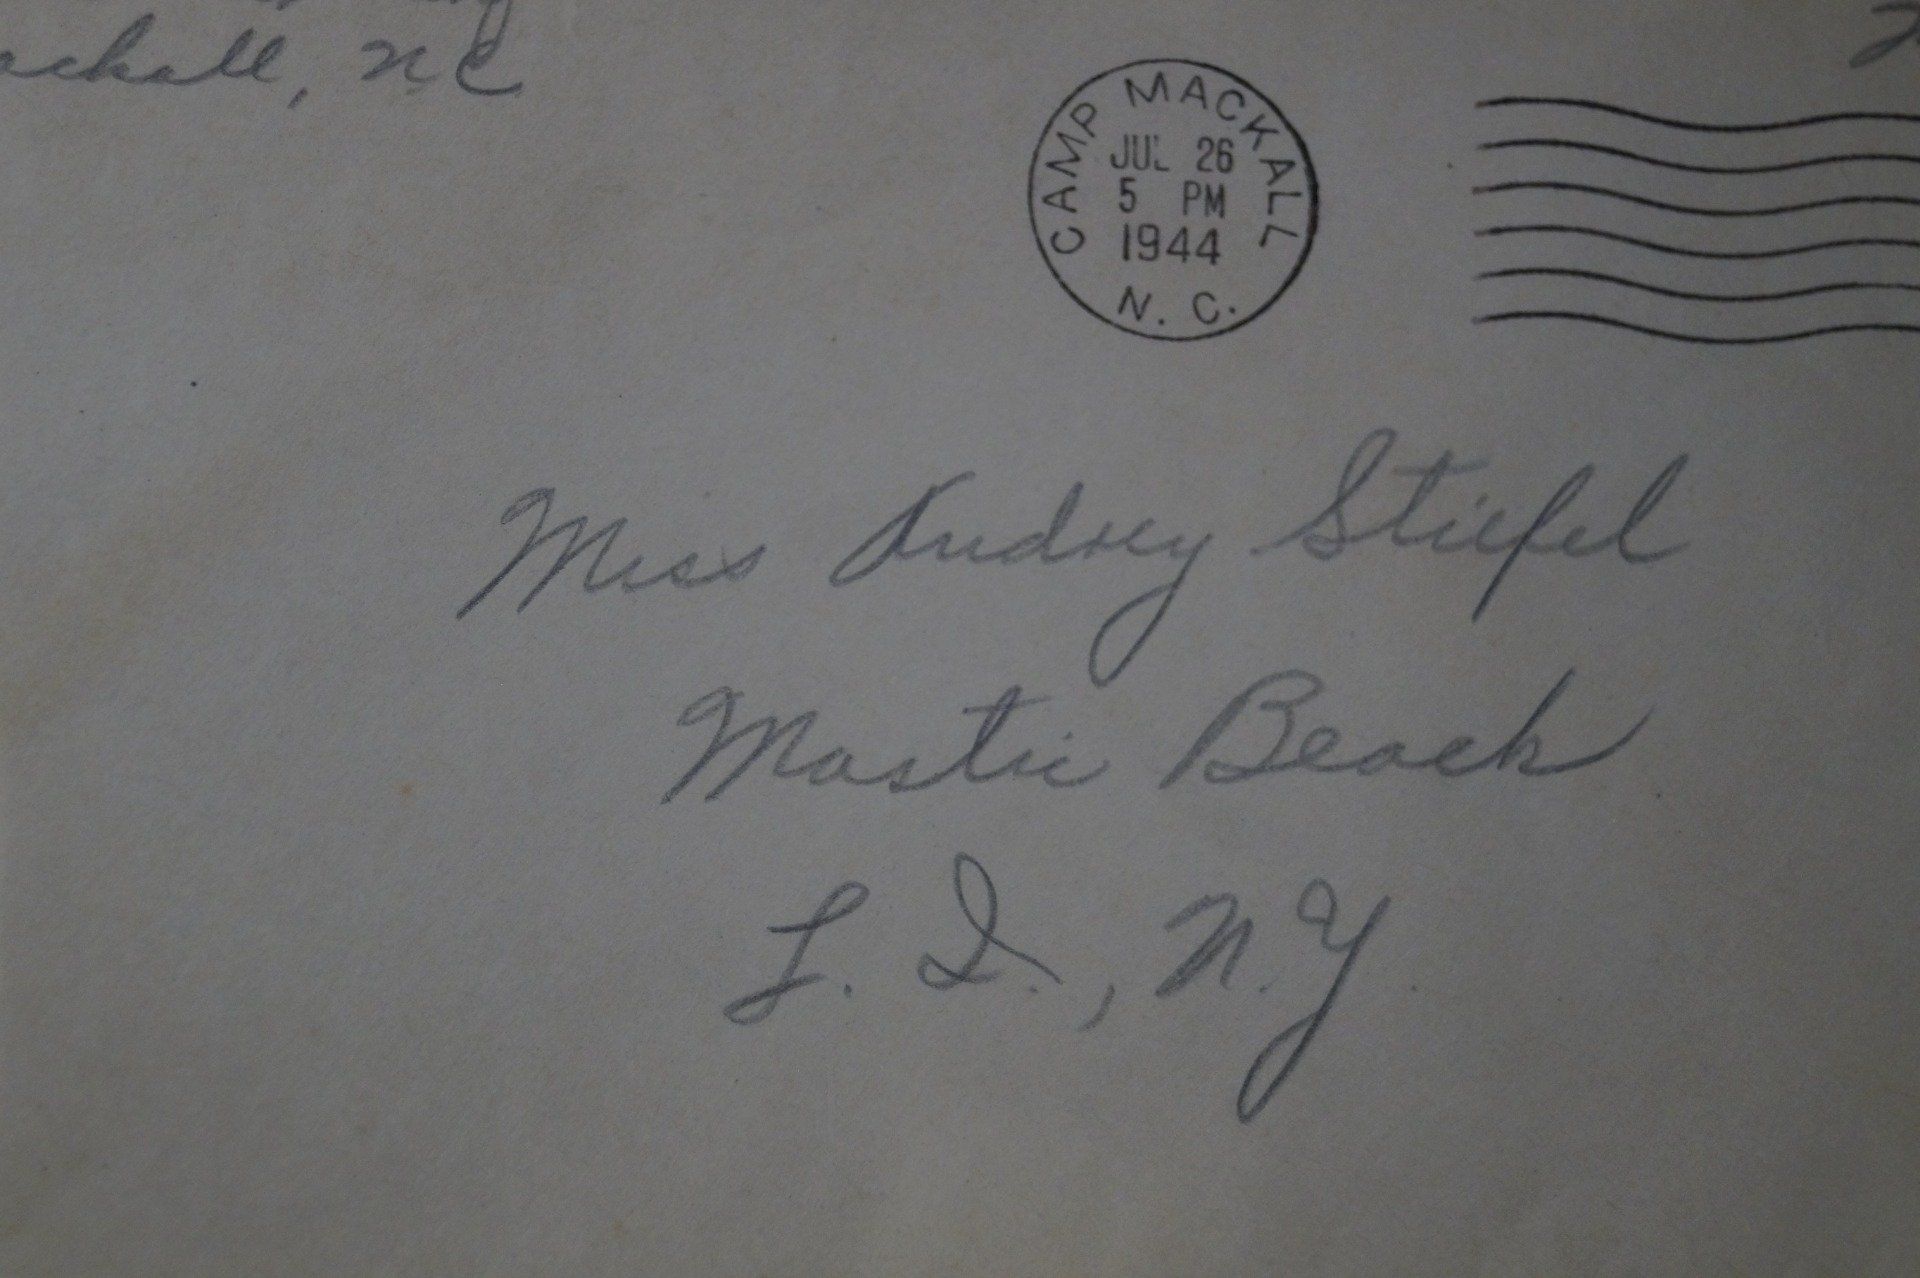 NC
CAMP MACKALL
JUL 26
5 PM
1944
N. C.
Miss Audrey Stiefel
Mastic Beach
L. I., N.Y.